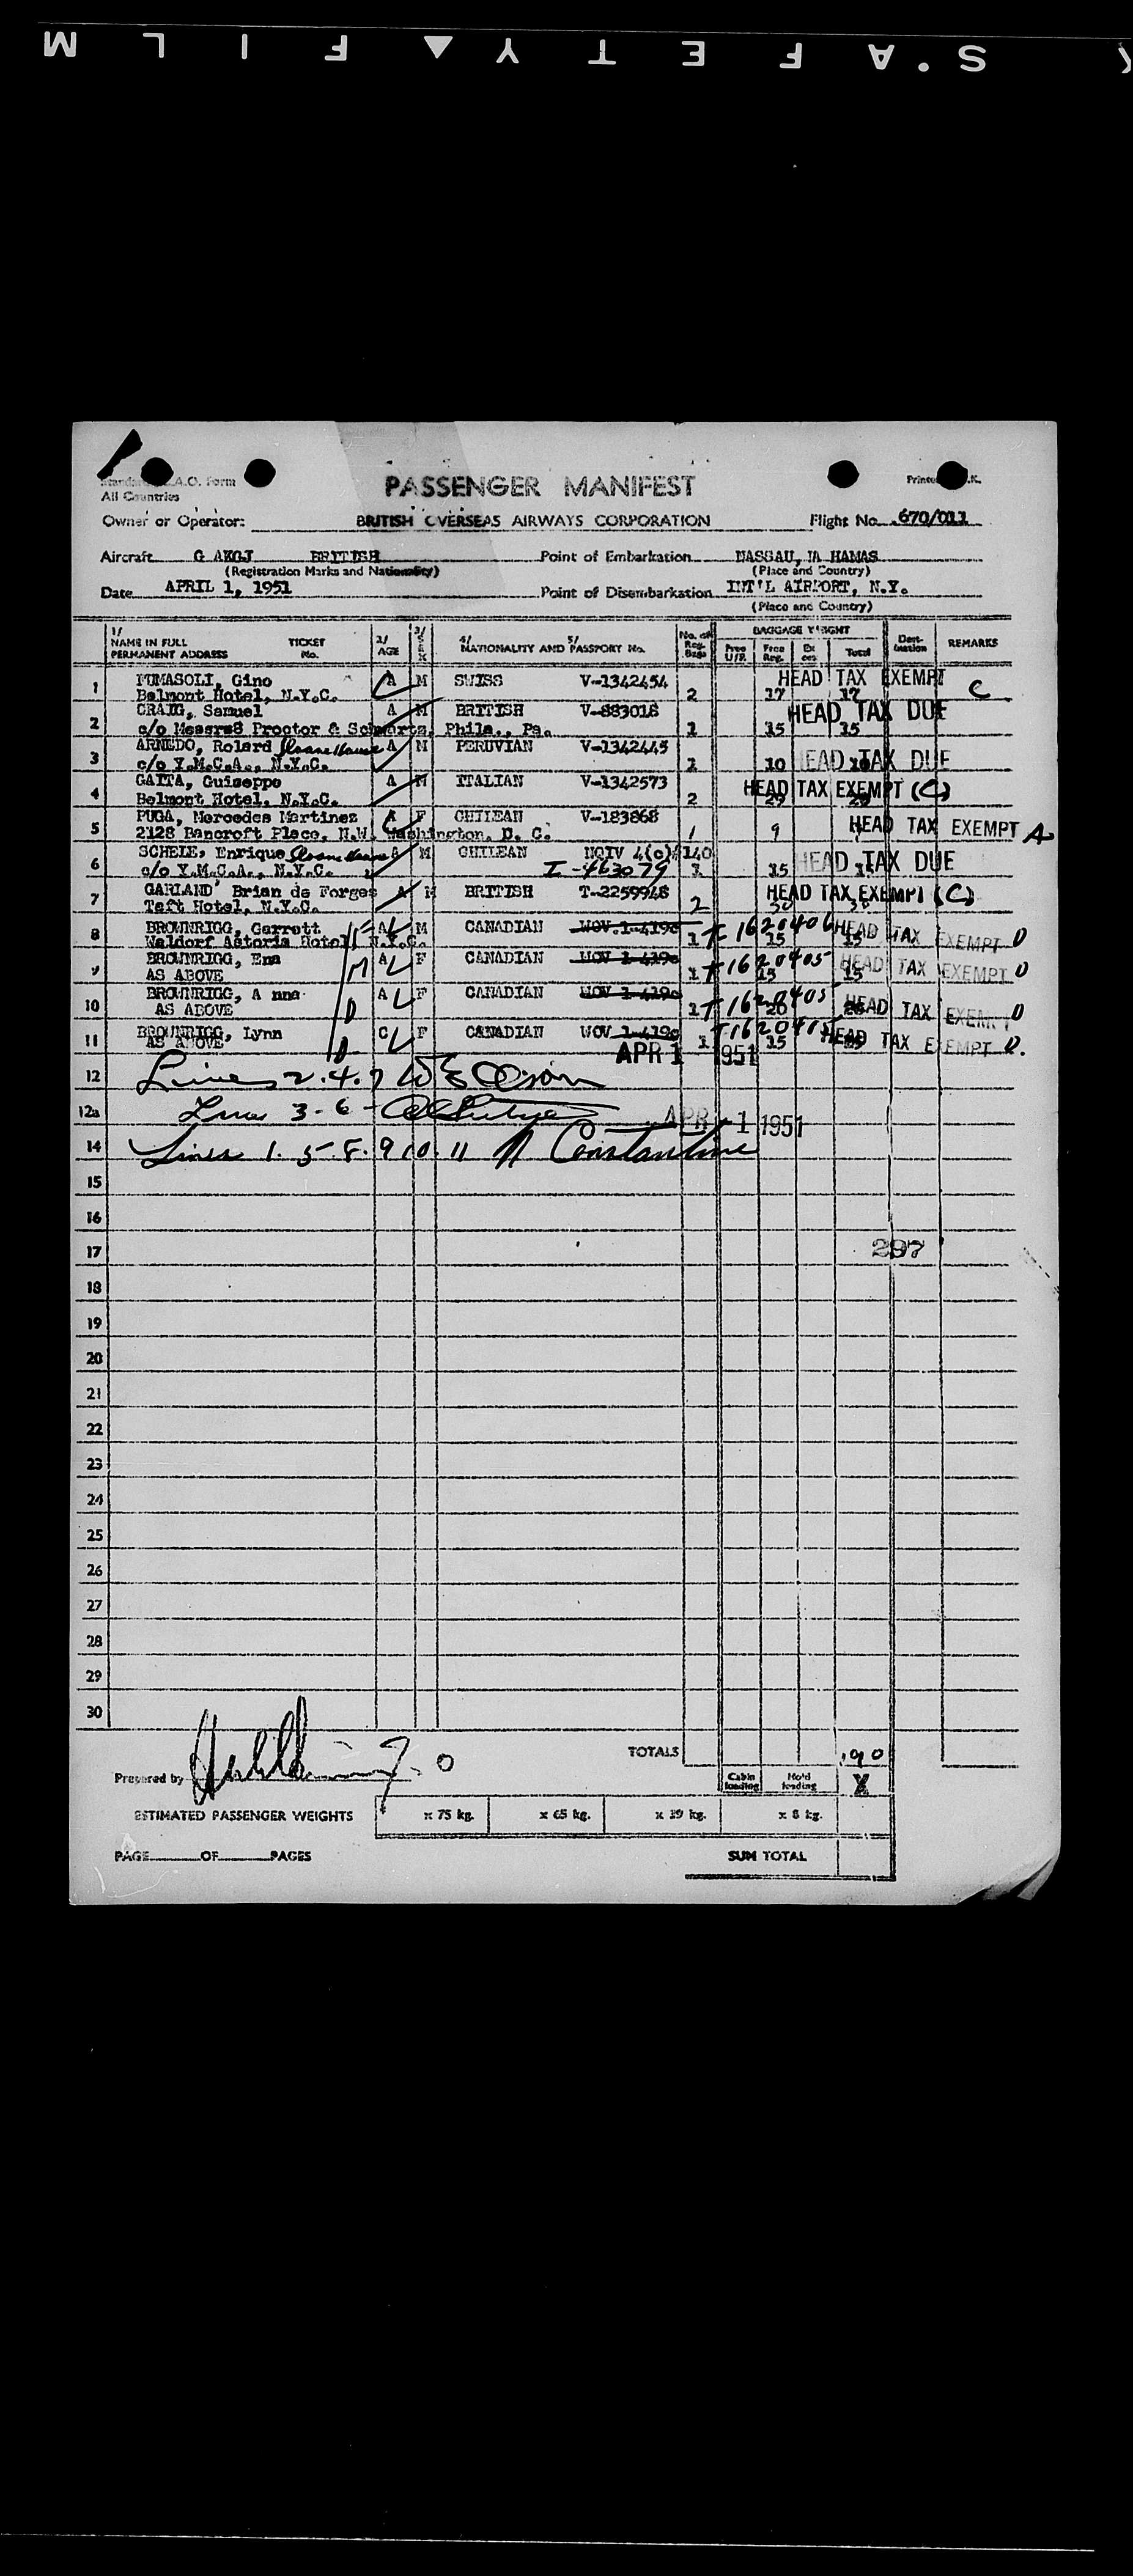 S.AFETY FILM
Standard I.C.A.O. Form
All Countries
PASSENGER MANIFEST
Owner or Operator: BRITISH OVERSEAS AIRWAYS CORPORATION Flight No. 670/011
Aircraft G AKGJ BRITISH Point of Embarkation NASSAU, BAHAMAS
(Registration Marks and Nationality) (Place and Country)
Date APRIL 1, 1951 Point of Disembarkation INT'L AIRPORT, N.Y.
(Place and Country)
1/ NAME IN FULL PERMANENT ADDRESS TICKET No. 2/ AGE 3/ SEX 4/ 5/ NATIONALITY AND PASSPORT No. No. of Reg. Bags BAGGAGE WEIGHT Free U/R Free Reg. Ex ces Total Dest- ination REMARKS
1 FUMASOLI, Gino A M SWISS V-1342454 2 17 17 HEAD TAX EXEMPT C
Belmont Hotel, N.Y.C.
2 CRAIG, Samuel A M BRITISH V-883018 1 15 15 HEAD TAX DUE
c/o Messrs Proctor & Schwartz, Phila., Pa.
3 ARNEDO, Rolard Sloane House A M PERUVIAN V-1342445 1 10 10 HEAD TAX DUE
c/o Y.M.C.A., N.Y.C.
4 GATTA, Guiseppe A M ITALIAN V-1342573 2 29 29 HEAD TAX EXEMPT (C)
Belmont Hotel, N.Y.C.
5 PUGA, Mercedes Martinez A F CHILEAN V-183868 1 9 HEAD TAX EXEMPT A
2128 Bancroft Place, N.W. Washington, D. C.
6 SCHELE, Enrique Sloane House A M CHILEAN NQIV 4(c)#140 1 15 15 HEAD TAX DUE
c/o Y.M.C.A., N.Y.C. I-463079
7 GARLAND Brian de Forges A M BRITISH T-2259948 2 30 HEAD TAX EXEMPT (C)
Taft Hotel, N.Y.C.
8 BROWNRIGG, Garrett A M CANADIAN WOV 1-419c 1 T-1620406 15 15 HEAD TAX EXEMPT D
Waldorf Astoria Hotel, N.Y.C.
9 BROWNRIGG, Ena M A F CANADIAN WOV 1-419c 1 T1620405 15 15 HEAD TAX EXEMPT D
AS ABOVE
10 BROWNRIGG, A nna D A F CANADIAN WOV 1-419c 1 T1620405 20 20 HEAD TAX EXEMPT D
AS ABOVE
11 BROWNRIGG, Lynn D C F CANADIAN WOV 1-419c 1 T162041 15 HEAD TAX EXEMPT D.
AS ABOVE
APR 1 1951
12 Lines 2.4.7
12a Lines 3-6-
APR -1 1951
14 Lines 1. 5-8. 9 10. 11 N Constantine
15
16
17 297
18
19
20
21
22
23
24
25
26
27
28
29
30
TOTALS 190
Prepared by
Cabin loading Hold loading X
ESTIMATED PASSENGER WEIGHTS x 75 kg. x 65 kg. x 39 kg. x 8 kg.
PAGE OF PAGES SUM TOTAL